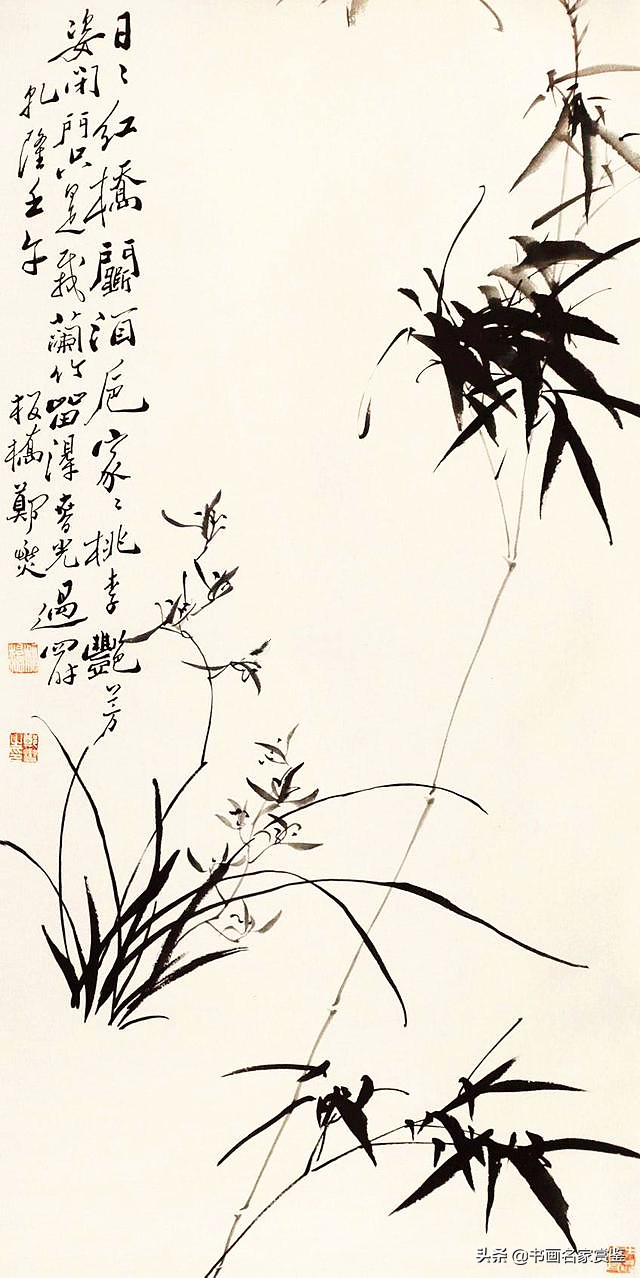 日〻紅橋鬭酒卮家〻桃李艷芳
姿閉門只是栽蘭竹留得春光過四時
乾隆壬午
板橋鄭燮
头条 @书画名家赏鉴